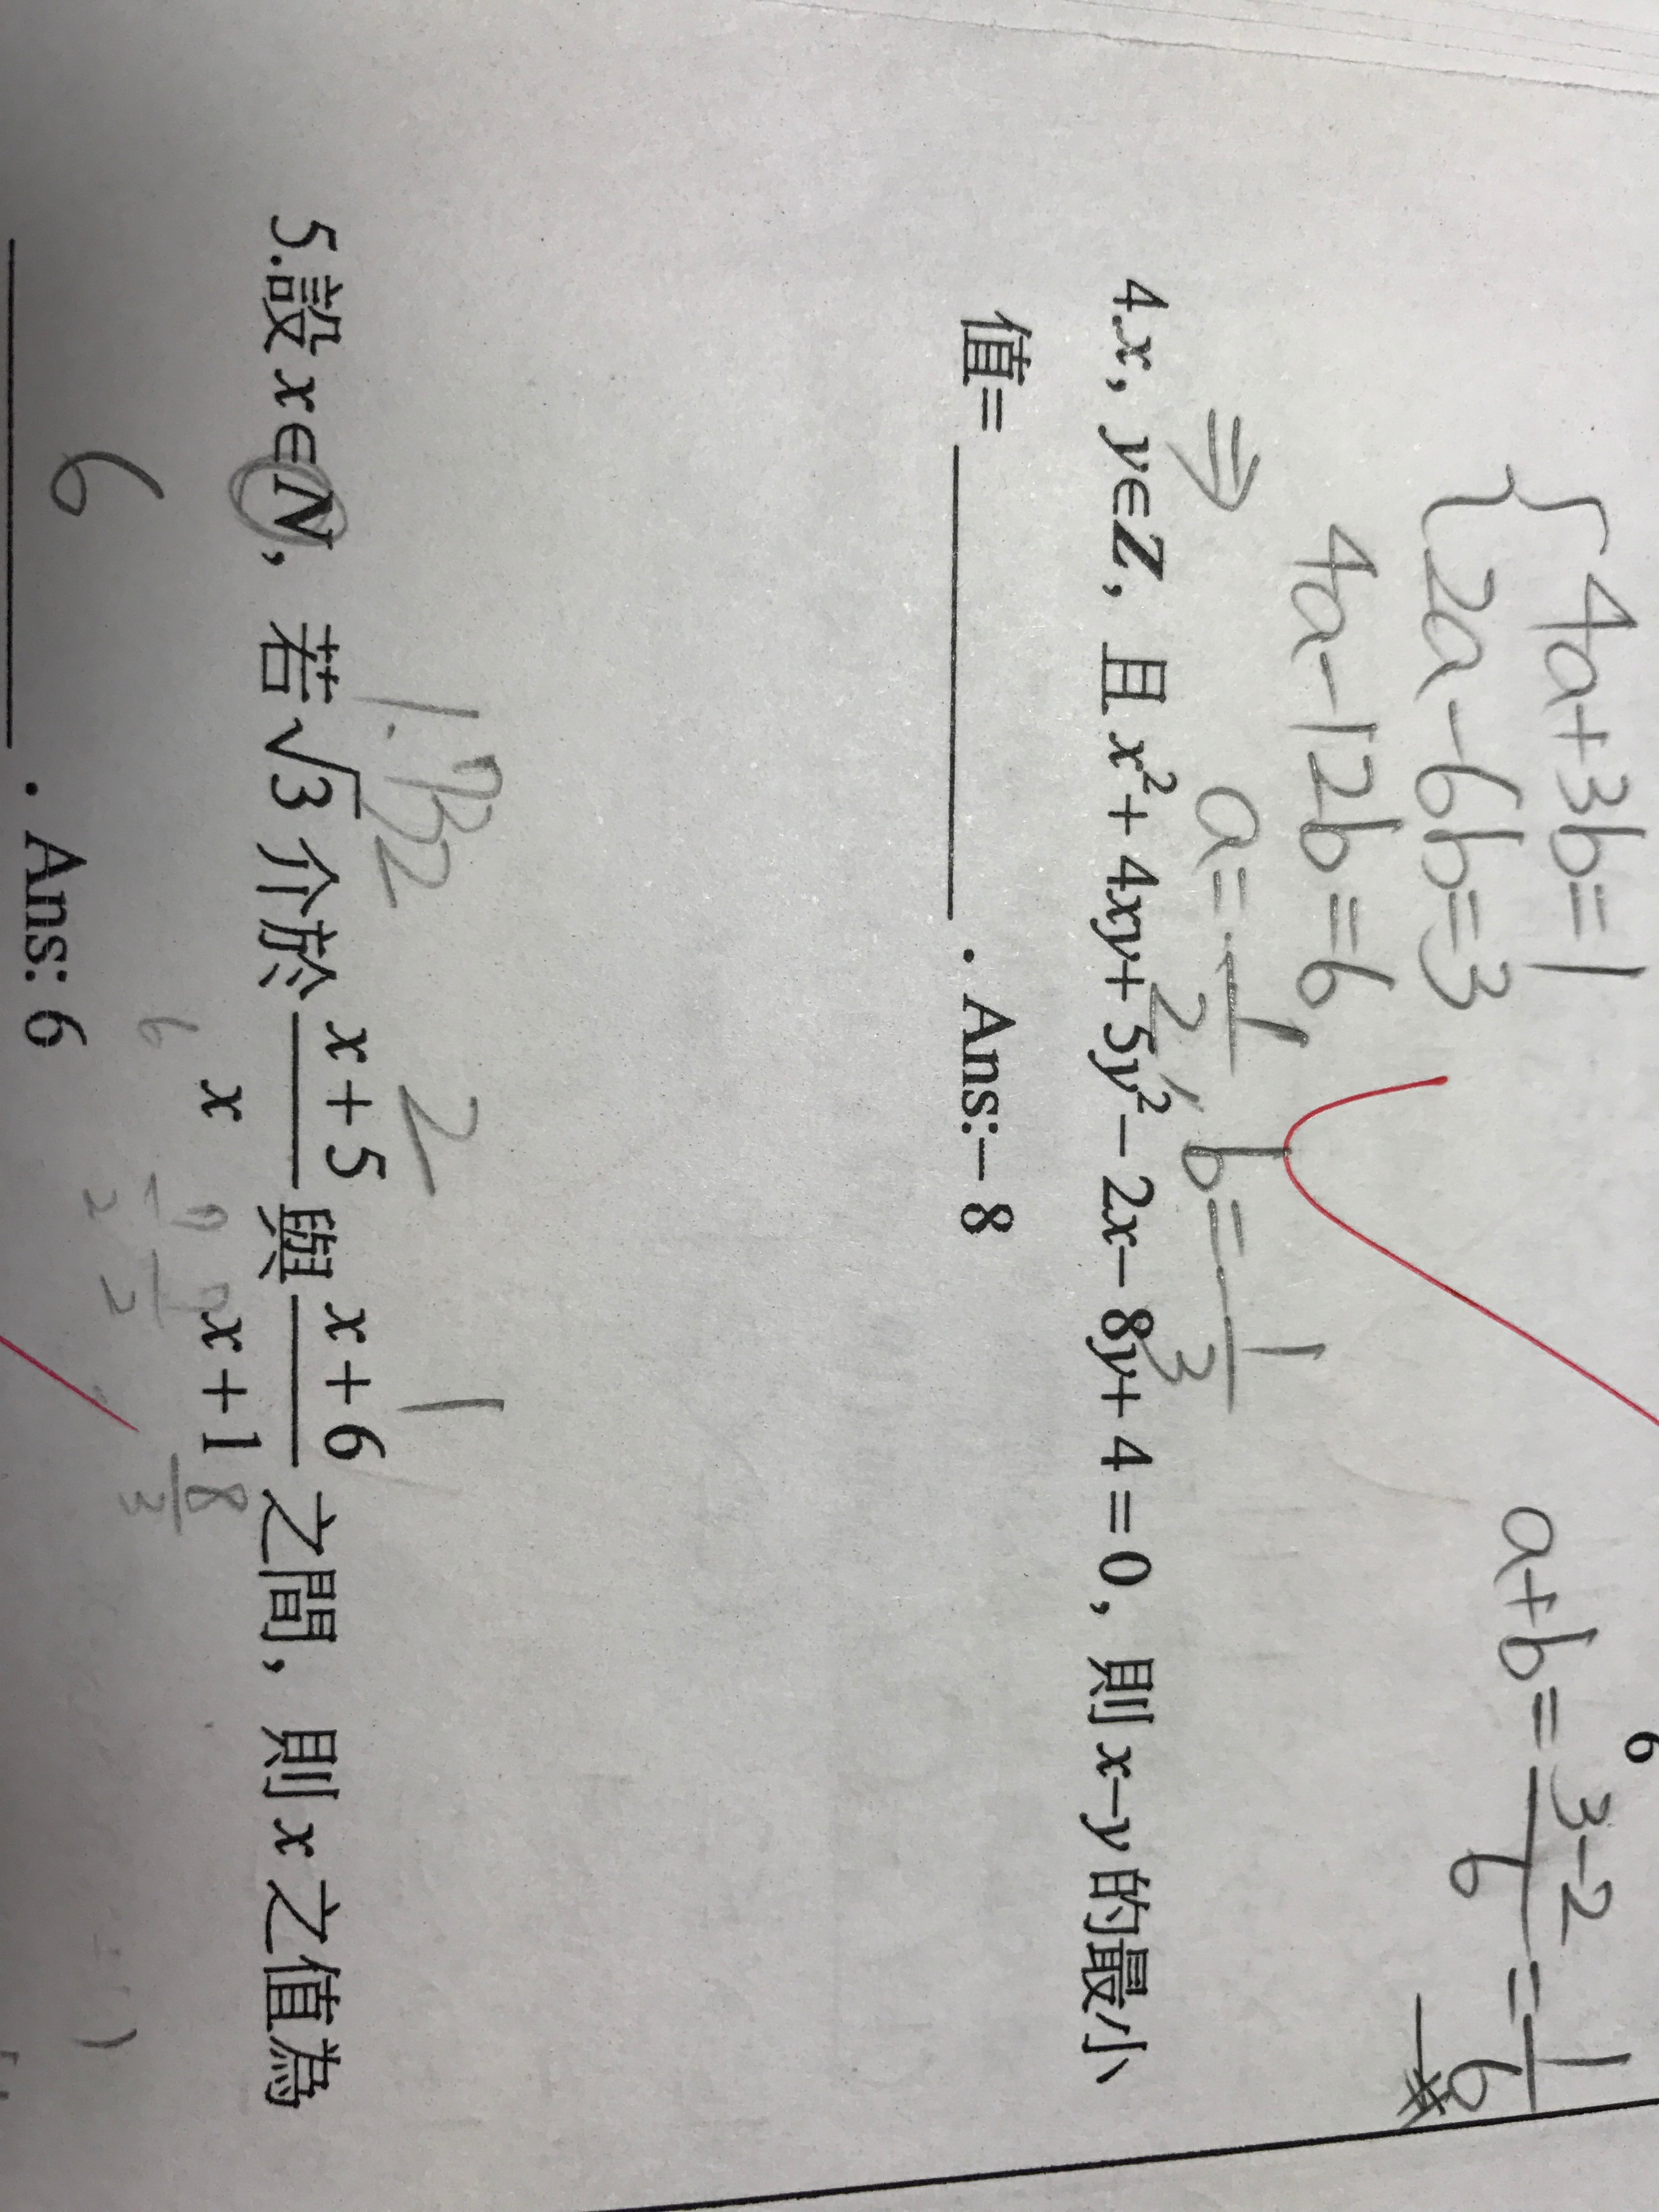 6
{4a+3b=1
2a-6b=3
4a-12b=6
a+b=\frac{3-2}{6}=\frac{1}{6}
⇒ a=\frac{1}{2}, b=-\frac{1}{3}
4.x, y∈Z, 且 x²+4xy+5y²−2x−8y+4=0, 則 x−y 的最小
值= ________. Ans:−8
1.732 2 1
5.設 x∈N, 若√3 介於 \frac{x+5}{x} 與 \frac{x+6}{x+1} 之間, 則 x 之值為
6
\frac{8}{3}
6
________. Ans: 6